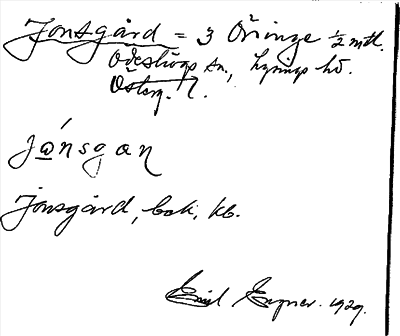 Jonsgård = 3 Öringe ½ mtl.
Ödeshögs sn., Lysings hd.
Österg. l.
jónsgan
Jonsgård, bok, kb.
Emil 1929.